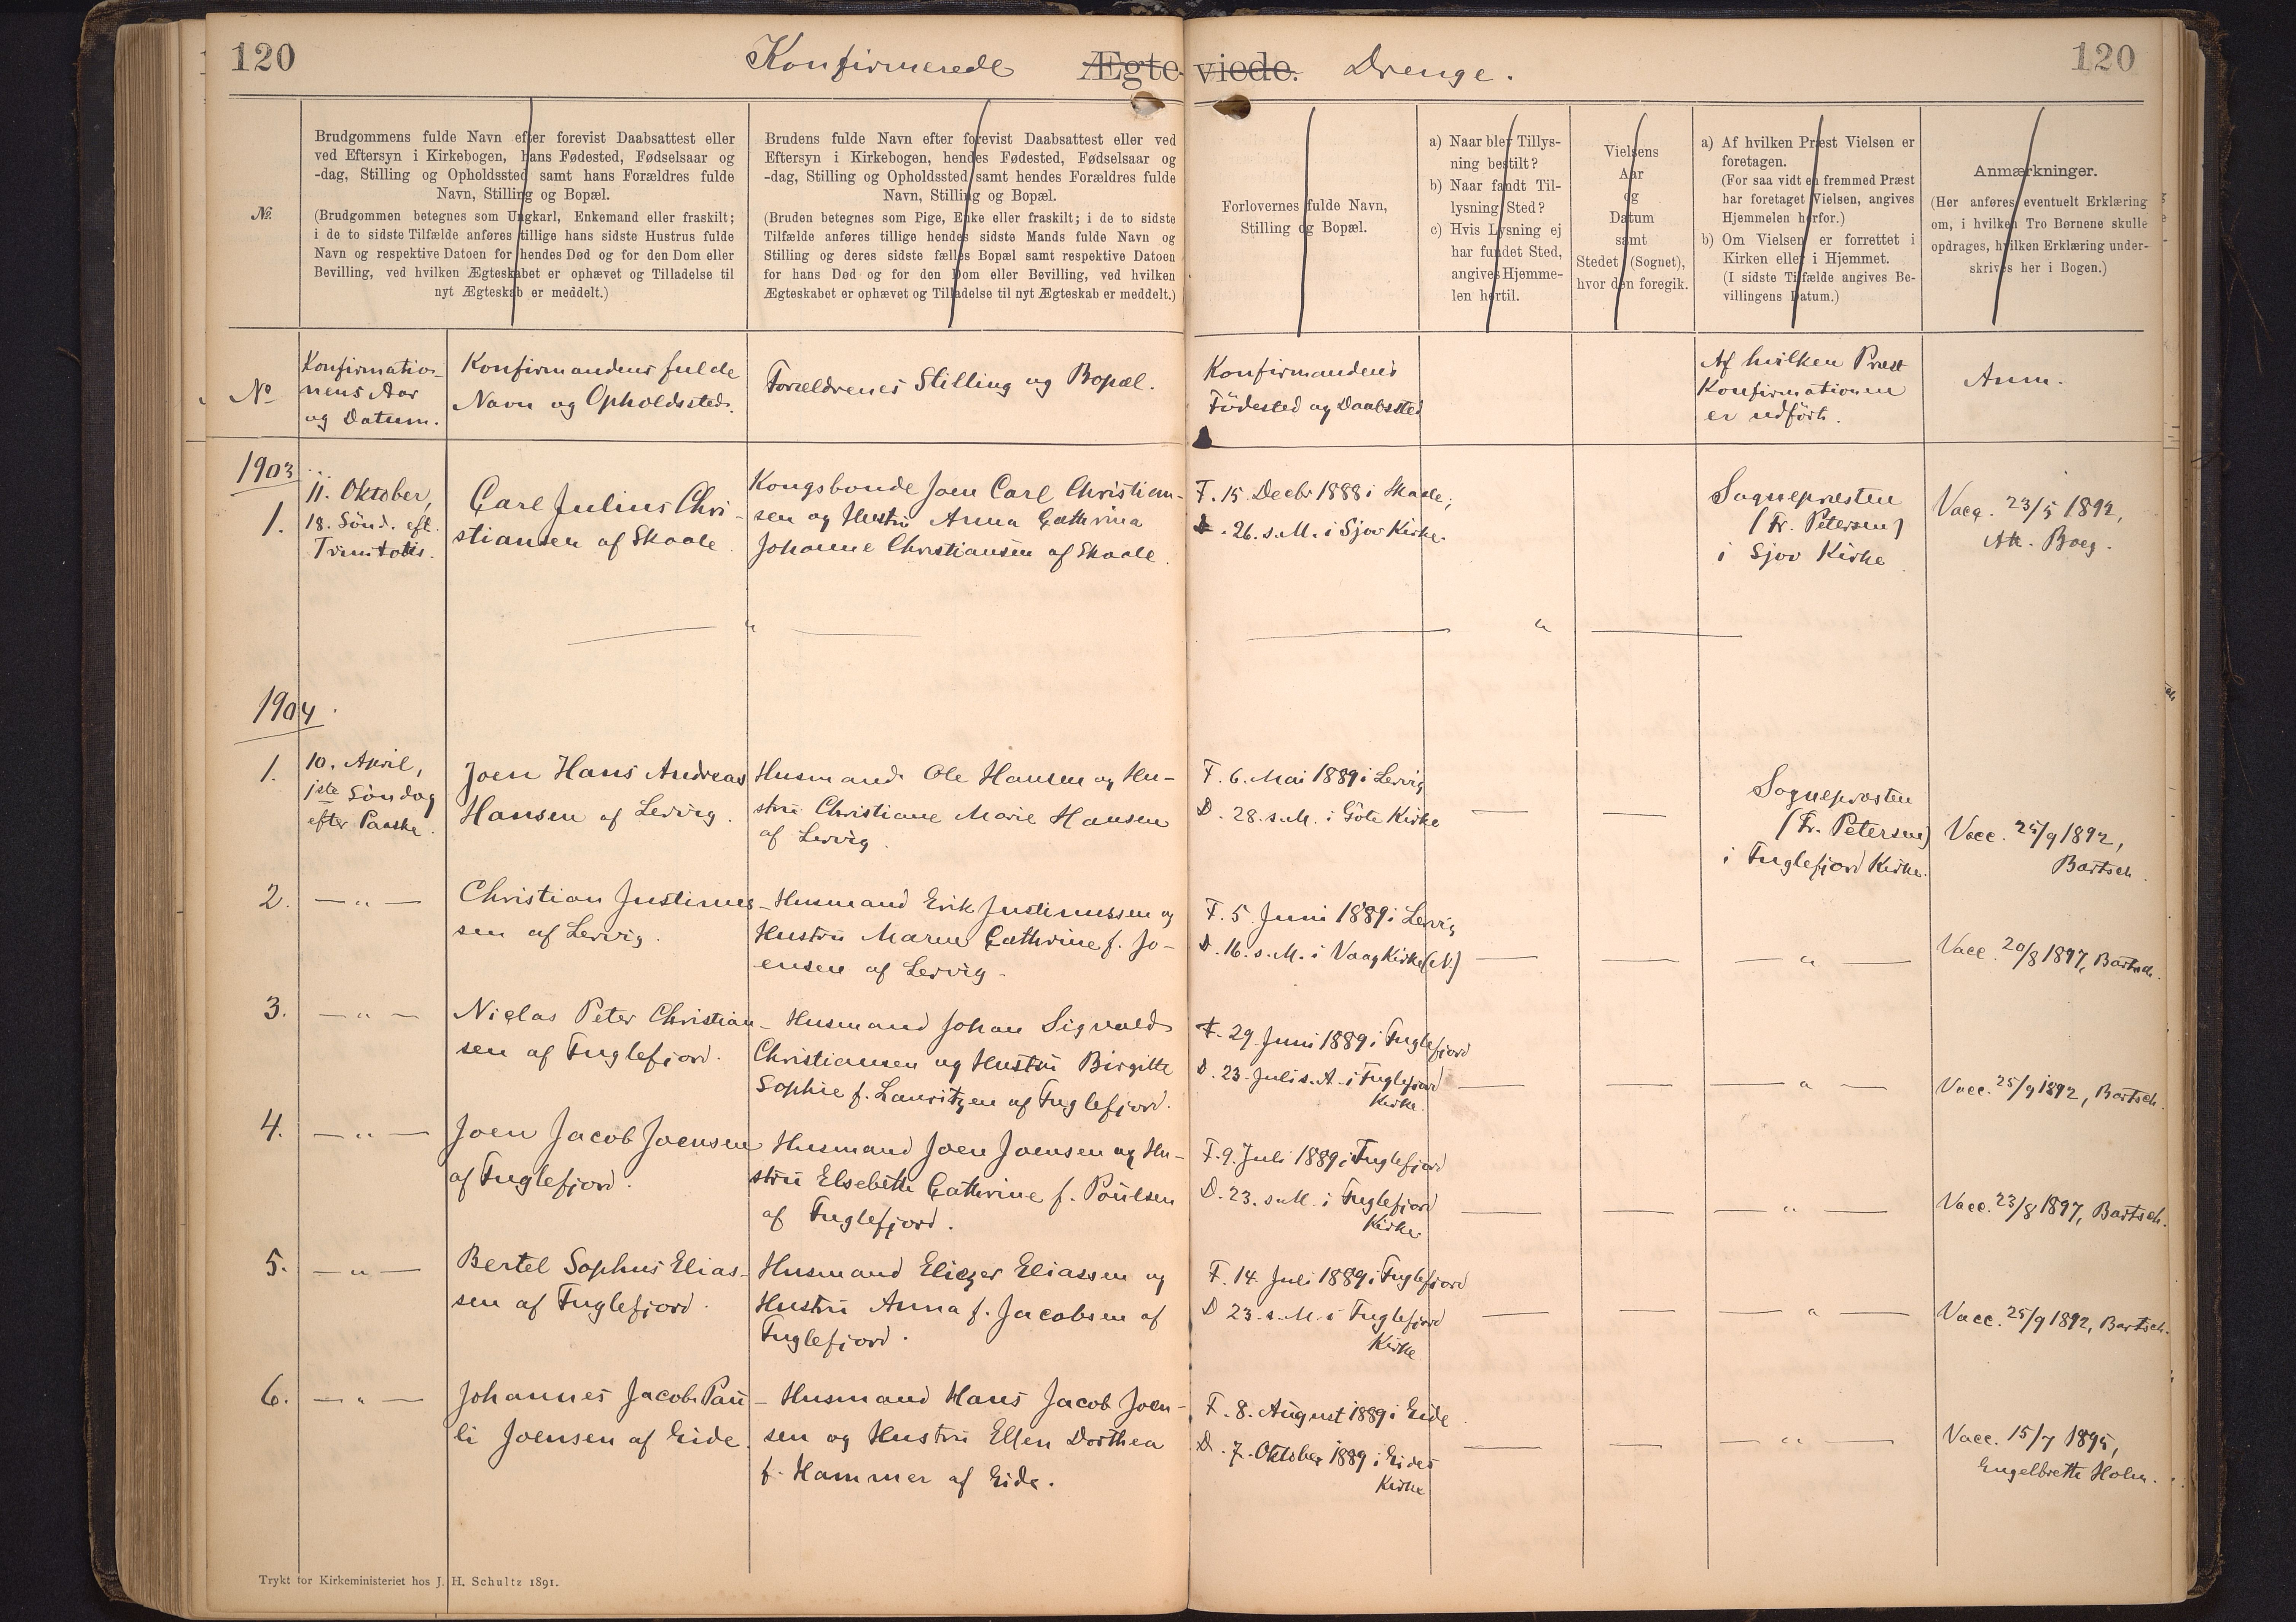 120
Konfirmerede Ægteviede. Drenge.
120
№.
Brudgommens fulde Navn efter forevist Daabsattest eller
ved Eftersyn i Kirkebogen, hans Fødested, Fødselsaar og
-dag, Stilling og Opholdssted samt hans Forældres fulde
Navn, Stilling og Bopæl.
(Brudgommen betegnes som Ungkarl, Enkemand eller fraskilt;
i de to sidste Tilfælde anføres tillige hans sidste Hustrus fulde
Navn og respektive Datoen for hendes Død og for den Dom eller
Bevilling, ved hvilken Ægteskabet er ophævet og Tilladelse til
nyt Ægteskab er meddelt.)
Brudens fulde Navn efter forevist Daabsattest eller ved
Eftersyn i Kirkebogen, hendes Fødested, Fødselsaar og
-dag, Stilling og Opholdssted samt hendes Forældres fulde
Navn, Stilling og Bopæl.
(Bruden betegnes som Pige, Enke eller fraskilt; i de to sidste
Tilfælde anføres tillige hendes sidste Mands fulde Navn og
Stilling og deres sidste fælles Bopæl samt respektive Datoen
for hans Død og for den Dom eller Bevilling, ved hvilken
Ægteskabet er ophævet og Tilladelse til nyt Ægteskab er meddelt.)
Forlovernes fulde Navn,
Stilling og Bopæl.
a) Naar blev Tillys-
ning bestilt?
b) Naar fandt Til-
lysning Sted?
c) Hvis Lysning ej
har fundet Sted,
angives Hjemme-
len hertil.
Vielsens
Aar
og
Datum
samt
Stedet (Sognet),
hvor den foregik.
a) Af hvilken Præst Vielsen er
foretagen.
(For saa vidt en fremmed Præst
har foretaget Vielsen, angives
Hjemmelen herfor.)
b) Om Vielsen er forrettet i
Kirken eller i Hjemmet.
(I sidste Tilfælde angives Be-
villingens Datum.)
Anmærkninger.
(Her anføres eventuelt Erklæring
om, i hvilken Tro Børnene skulle
opdrages, hvilken Erklæring under-
skrives her i Bogen.)
No
Konfirmatio-
nens Aar
og Datum.
Konfirmandens fulde
Navn og Opholdssted.
Forældrenes Stilling og Bopæl.
Konfirmandens
Födested og Daabssted
Af hvilken Præst
Konfirmationen
er udfört.
Anm.
1903
1.
11. Oktober,
18. Sönd. eft.
Trinitatis.
Carl Julius Chri-
stiansen af Skaale.
Kongsbonde Joen Carl Christian-
sen og Hustrü Anna Cathrina
Johanne Christiansen af Skaale.
F. 15. Decbr 1888 i Skaale;
D. 26. s. M. i Sjov Kirke.
Sognepræsten
(Fr. Petersen)
i Sjov Kirke
Vacc. 23/5 1892,
Ak. Boeg.
"
"
1904
1.
10. April,
1ste Söndag
efter Paaske.
Joen Hans Andreas
Hansen af Lervig.
Husmand Ole Hansen og Hu-
strü Christiane Marie Hansen
af Lervig.
F. 6. Mai 1889 i Lervig
D. 28. s. M. i Göte Kirke
— —
Sognepræsten
(Fr. Petersen)
i Fuglefjord Kirke.
Vacc. 25/9 1892,
Bartsch.
2.
— " —
Christian Justinus-
sen af Lervig.
Husmand Erik Justinussen og
Hustrü Maren Cathrine f. Jo-
ensen af Lervig.
F. 5. Juni 1889 i Lervig
D. 16. s. M. i Vaag Kirke (N.)
— —
— " —
Vacc. 20/8 1897, Bartsch.
3.
— " —
Niclas Peter Christian-
sen af Fuglefjord.
Husmand Johan Sigvald
Christiansen og Hustrü Birgitte
Sophie f. Lauritzen af Fuglefjord.
F. 29. Juni 1889 i Fuglefjord
D. 23. Juli s. A. i Fuglefjord
Kirke.
— —
— " —
Vacc. 25/9 1892, Bartsch.
4.
— " —
Joen Jacob Joensen
af Fuglefjord.
Husmand Joen Joensen og Hu-
strü Elsebeth Cathrine f. Poülsen
af Fuglefjord.
F. 9. Juli 1889 i Fuglefjord
D. 23. s. M. i Fuglefjord
Kirke
— —
— " —
Vacc. 23/8 1897, Bartsch.
5.
— " —
Bertel Sophus Elias-
sen af Fuglefjord.
Husmand Eliezer Eliassen og
Hustrü Anna f. Jacobsen af
Fuglefjord.
F. 14. Juli 1889 i Fuglefjord
D 23. s. M. i Fuglefjord
Kirke
— —
— " —
Vacc. 25/9 1892, Bartsch.
6.
— " —
Johannes Jacob Paü-
li Joensen af Eide.
Husmand Hans Jacob Joen-
sen og Hustrü Ellen Dorthea
f. Hammer af Eide.
F. 8. Aügust 1889 i Eide
D. 7. Oktober 1889 i Eides
Kirke
— —
— " —
Vacc. 15/7 1895,
Engelbreth Holm.
Trykt for Kirkeministeriet hos J. H. Schultz 1891.